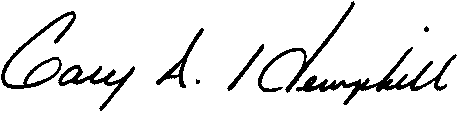 Gary A. Hemphill